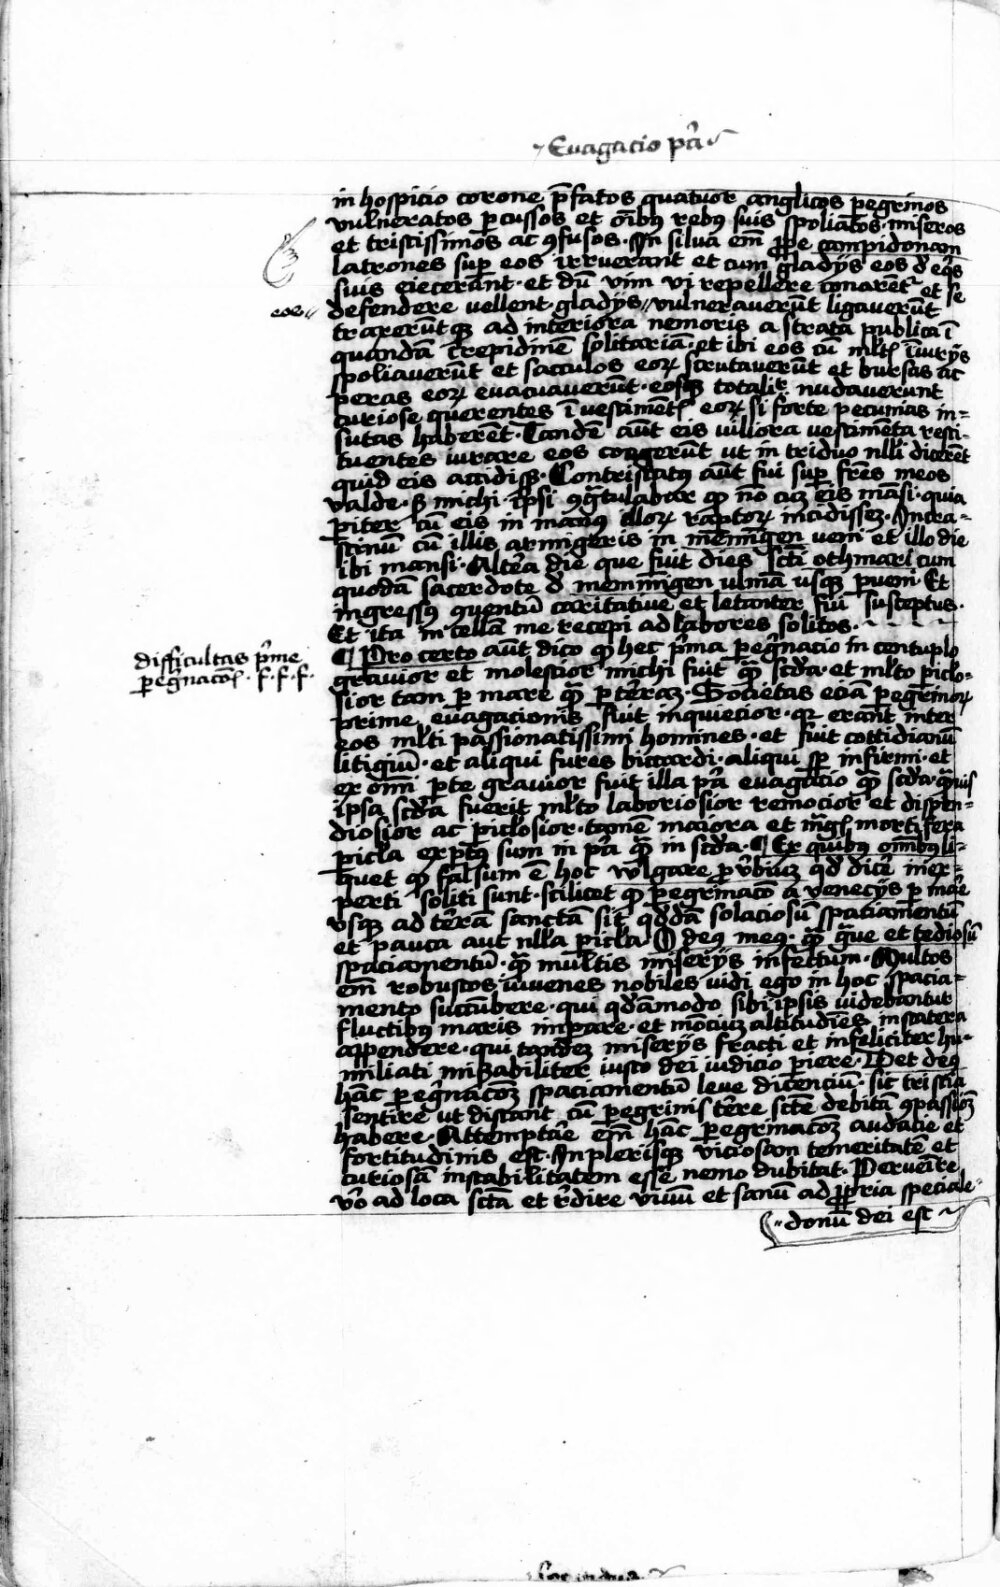 Euagacio pͥa
in hospicio corone p̄fatos quatuor anglicos peregrinos
vulneratos percussos et oībꝰ rebꝰ suis spoliatos · miseros
et tristissimos ac ꝯfusos · In silua em̄ prope campidonam
latrones suꝑ eos irruerant et cum gladijs eos de eqͥs
suis eiecerant · et dū vim vi repellere conarent̄ et se
eos
defendere vellent gladijs vulnerauerūt ligauerūt
traxerūtqꝫ ad interiora nemoris a strata publica ī
quandā crepidinē solitariā · et ibi eos cū ml̄t iniurijs
spoliauerūt et sacculos eoꝝ scrutauerūt et bursas ac
peras eoꝝ euacuauerūt · eosqꝫ totalit̄ nudauerunt
curiose querentes ī vestiment̄ eoꝝ si forte pecunias in=
sutas haberēt · Tandē aūt eis viliora vestimēta resti-
tuentes iurare eos coegerūt ut in triduo nlli dicerēt
quid eis accidissꝫ · Contristatꝰ aūt fui suꝑ fr̄es meos
valde · sꝫ michi ip̄si ꝯgͣtulabar qꝫ nō cū eis māsi · quia
pariter cū eis in manꝰ illoꝝ raptoꝝ incidissem · In cra=
stinū cū illis armigeris in memīgen veni et illo die
ibi mansi · Altera die que fuit dies scti othmari cum
quodā sacerdote de memīgen vlmā vsqꝫ perueni · Et
ingressꝰ ꝯuentū caritatiue et letanter fui susceptus ·
Et ita in cellā me recepi ad labores solitos ·
difficultas pͥme
peregͥnacōis · f · f · f ·
¶ Pro certo aūt dico qꝫ hec pͥma peregͥnacio in centuplo
grauior et molestior michi fuit qͣ scd̄a · et ml̄to piclo=
sior tam per mare qͣ per terrā · Societas eciā peregrinoꝝ
prime euagacionis fuit inquiecior · qꝛ erant inter
eos ml̄ti passionatissimi homines · et fuit cottidianū
litigiū · et aliqui fures biccardi · aliqui sꝑ infirmi · et
ex omī parte grauior fuit illa pͥa euagacio qͣ scd̄a · qͣuis
ipsa scd̄a fuerit ml̄to laboriosior remocior et dispen=
diosior ac piclosior · tamē maiora et mͣgl̄ mortifera
picla expertꝰ sum in pͥa qͣ in scd̄a · ¶ Ex quibus omībꝰ li=
quet qꝫ falsum ē hoc vulgare prouerbiū qd̄ dicere inex=
perti soliti sunt · scilicet qꝫ peregrinacō a venecijs per mare
vsqꝫ ad terrā sanctā sit qͦddā solaciosū spaciamentū
et pauca aut nlla picla O deꝰ meꝰ · qͣ gͣue et tediosū
spaciamentū · qͣ multis miserijs infectum · Multos
em̄ robustos iuuenes nobiles vidi ego in hoc spacia=
mento succūbere · qui qͦdāmodo sibi ipsis videbantur
fluctibꝰ maris impare · et mōciū altitudiēs in statera
appendere · qui tandem miserijs fracti et infeliciter hu-
miliati miserabiliter iusto dei iudicio periere · Det deꝰ
hāc peregͥnacōem spaciamentū leue dicenciū · sic tristia
sentire ut discant cū peregrinis terre scte debitā ꝯpassiōem
habere · Attemptare em̄ hāc peregrinacōem audacie et
fortitudinis est · In plerisqꝫ viciosam temeritatē et
curiosā instabilitatem esse nemo dubitat · Peruenire
vͦo ad loca sctā et redire viuū et sanū ad propria speciale
donū dei est